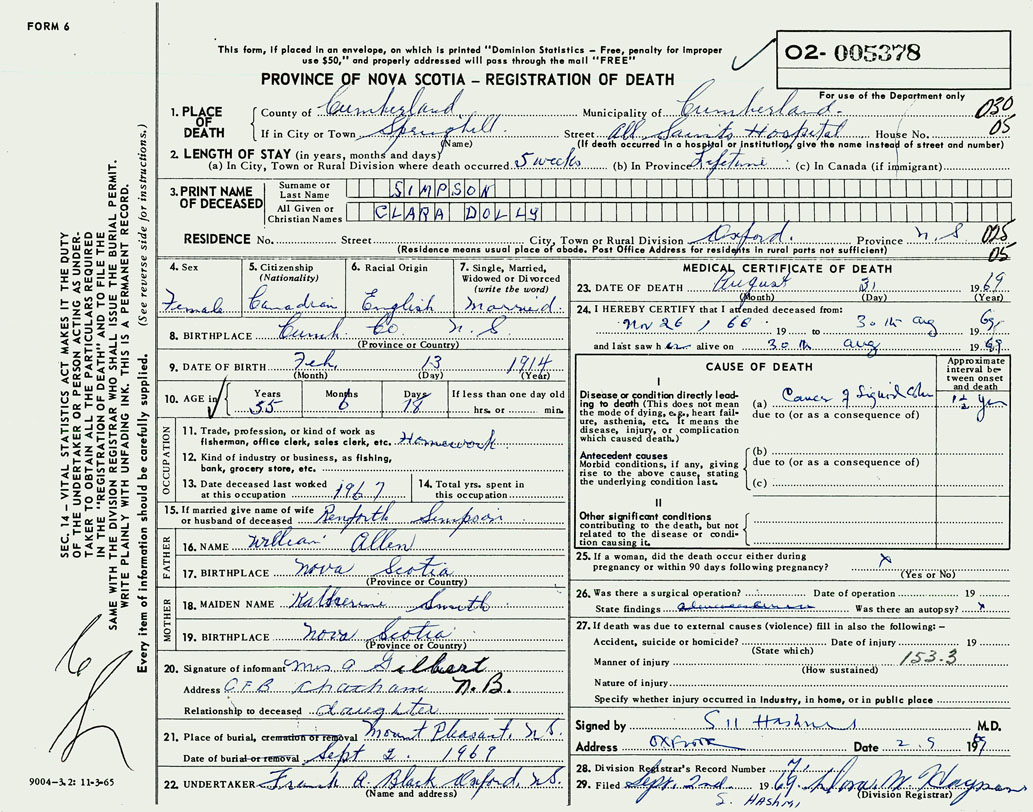 FORM 6
This form, if placed in an envelope, on which is printed "Dominion Statistics – Free, penalty for improper
use $50," and properly addressed will pass through the mail "FREE"
02-005378
PROVINCE OF NOVA SCOTIA – REGISTRATION OF DEATH
For use of the Department only
1. PLACE OF DEATH County of Cumberland Municipality of Cumberland 030
If in City or Town Springhill Street All Saints Hospital House No. 05
(Name) (If death occurred in a hospital or institution, give the name instead of street and number)
2. LENGTH OF STAY (in years, months and days)
(a) In City, Town or Rural Division where death occurred 5 weeks (b) In Province Lifetime (c) In Canada (if immigrant)
3. PRINT NAME OF DECEASED Surname or Last Name SIMPSON
All Given or Christian Names CLARA DOLLY
RESIDENCE No. Street City, Town or Rural Division Oxford. Province N.S 025
(Residence means usual place of abode. Post Office Address for residents in rural parts not sufficient) 05
4. Sex Female
5. Citizenship (Nationality) Canadian
6. Racial Origin English
7. Single, Married, Widowed or Divorced (write the word) Married.
8. BIRTHPLACE Cumb Co. N.S
(Province or Country)
9. DATE OF BIRTH Feb 13 1914
(Month) (Day) (Year)
10. AGE in Years 55 Months 6 Days 18 If less than one day old hrs. or min.
OCCUPATION
11. Trade, profession, or kind of work as fisherman, office clerk, sales clerk, etc. Homework
12. Kind of industry or business, as fishing, bank, grocery store, etc.
13. Date deceased last worked at this occupation 1967
14. Total yrs. spent in this occupation
15. If married give name of wife or husband of deceased Renforth Simpson
FATHER
16. NAME William Allen
17. BIRTHPLACE Nova Scotia
(Province or Country)
MOTHER
18. MAIDEN NAME Katherine Smith
19. BIRTHPLACE Nova Scotia
(Province or Country)
20. Signature of informant Mrs A Gilbert
Address C.F.B Chatham N.B.
Relationship to deceased daughter
21. Place of burial, cremation or removal Mount Pleasant, N.S.
Date of burial or removal Sept 2 1969
22. UNDERTAKER Frank A. Black Oxford N.S.
(Name and address)
MEDICAL CERTIFICATE OF DEATH
23. DATE OF DEATH August 31 1969
(Month) (Day) (Year)
24. I HEREBY CERTIFY that I attended deceased from:
Nov 26, 66 19 to 30 th Aug 69
and last saw her alive on 30 th Aug 1969
CAUSE OF DEATH
Approximate interval between onset and death
I
Disease or condition directly leading to death (This does not mean the mode of dying, e.g., heart failure, asthenia, etc. It means the disease, injury, or complication which caused death.)
(a) Cancer of Sigmoid 1½ yr
due to (or as a consequence of)
Antecedent causes
Morbid conditions, if any, giving rise to the above cause, stating the underlying condition last.
(b)
due to (or as a consequence of)
(c)
II
Other significant conditions contributing to the death, but not related to the disease or condition causing it.
25. If a woman, did the death occur either during pregnancy or within 90 days following pregnancy? x
(Yes or No)
26. Was there a surgical operation? Date of operation 19
State findings Was there an autopsy? x
27. If death was due to external causes (violence) fill in also the following: –
Accident, suicide or homicide? Date of injury 19
(State which)
Manner of injury 153.3
(How sustained)
Nature of injury
Specify whether injury occurred in industry, in home, or in public place
Signed by S H Hashmi M.D.
Address Oxford Date 2.9 1969
28. Division Registrar's Record Number 71
29. Filed Sept. 2nd 1969
(Division Registrar)
S. HASHMI
SEC. 14 – VITAL STATISTICS ACT MAKES IT THE DUTY
OF THE UNDERTAKER OR PERSON ACTING AS UNDER-
TAKER TO OBTAIN ALL THE PARTICULARS REQUIRED
IN THE "REGISTRATION OF DEATH" AND TO FILE THE
SAME WITH THE DIVISION REGISTRAR WHO SHALL ISSUE THE BURIAL PERMIT.
WRITE PLAINLY WITH UNFADING INK. THIS IS A PERMANENT RECORD.
Every item of information should be carefully supplied. (See reverse side for instructions.)
9004-3.2: 11-3-65